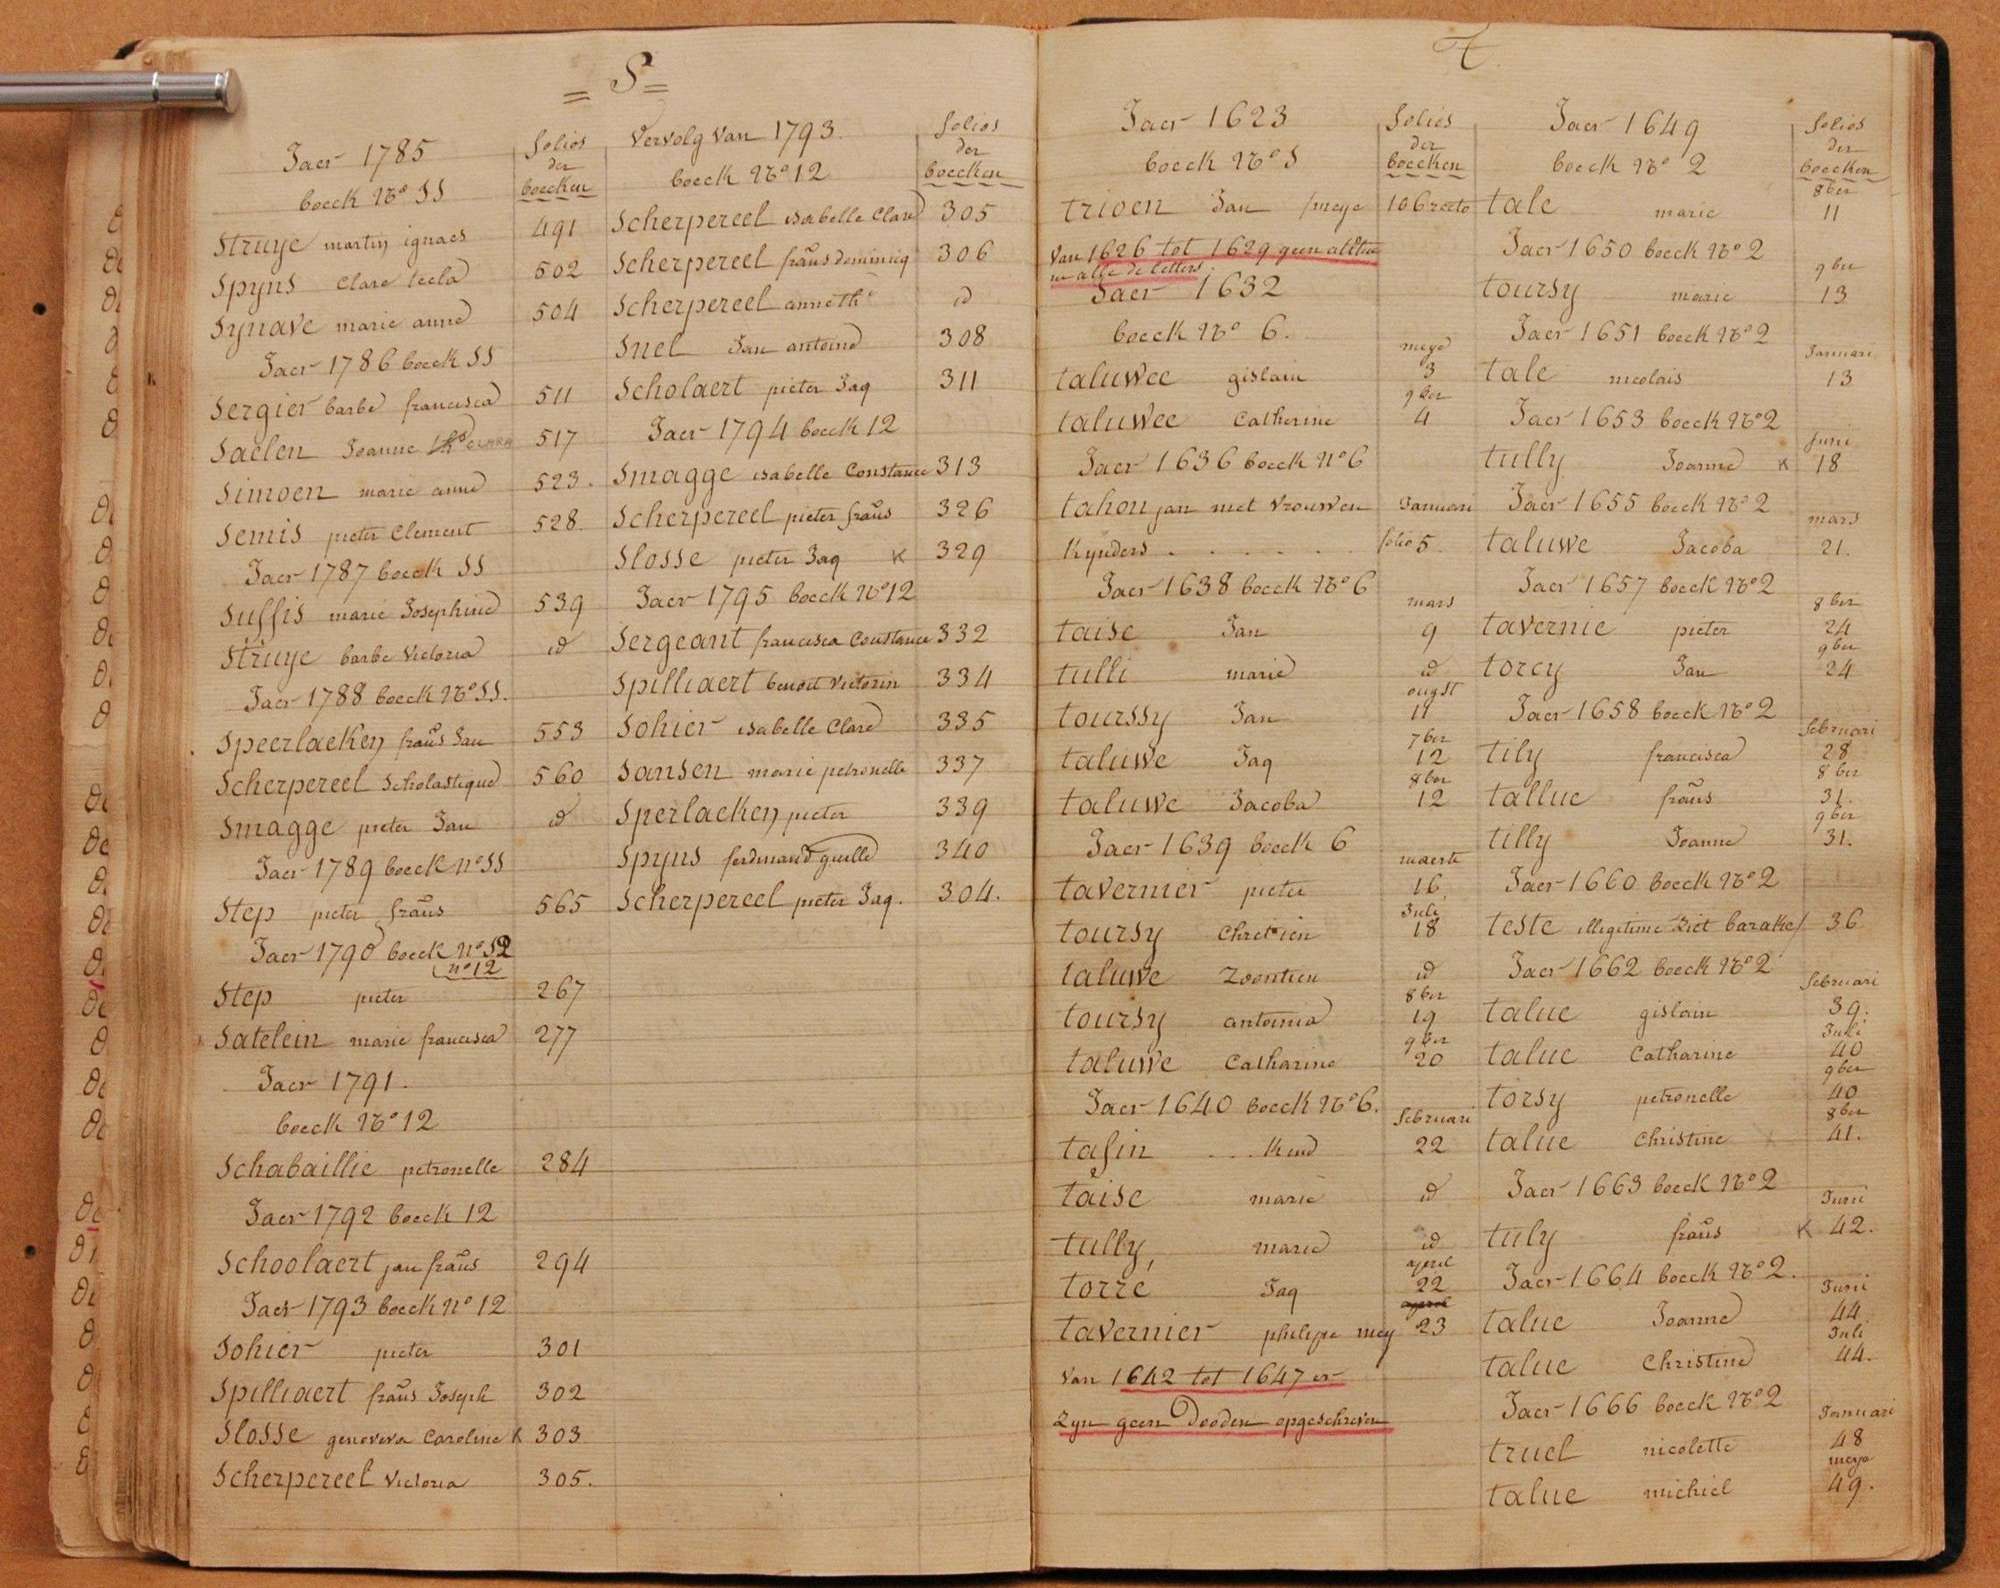 = S =
Jaer 1785
boeck No SS
folios
der
boecken
Struye martin ignaes 491
Spyns Clare tecla 502
Synave marie anne 504
Jaer 1786 boeck SS
Sergier barbe francisca 511
Saelen Joanne 517
Simoen marie anne 523.
Semis pieter Clement 528.
Jaer 1787 boeck SS
Suffis marie Josephine 539
Struye barbe Victoria id
Jaer 1788 boeck No SS.
Speerlaeken frans Jan 553
Scherpereel Scholastique 560
Smagge pieter Jan id
Jaer 1789 boeck no SS
Step pieter frans 565
Jaer 1790 boeck no
no 12
Step pieter 267
Satelein marie francisca 277
Jaer 1791.
boeck No 12
Schabaillie petronelle 284
Jaer 1792 boeck 12
Schoolaert jan frans 294
Jaer 1793 boeck no 12
Sohier pieter 301
Spilliaert frans Joseph 302
Slosse genoveva Caroline K 303
Scherpereel Victoria 305.
Vervolg Van 1793.
boeck No 12
folios
der
boecken
Scherpereel isabelle Clare 305
Scherpereel frans dominicq 306
Scherpereel anne th id
Snel Jan antoine 308
Scholaert pieter Jaq 311
Jaer 1794 boeck 12
Smagge isabelle Constance 313
Scherpereel pieter frans 326
Slosse pieter Jaq K 329
Jaer 1795 boeck no 12
Sergeant francisca Constance 332
Spilliaert benoit Victorin 334
Sohier isabelle Clare 335
Sansen marie petronelle 337
Sperlaeken pieter 339
Spyns ferdinand guille 340
Scherpereel pieter Jaq. 304.
T
Jaer 1623
boeck No S
folios
der
boecken
trioen Jan / meye 106 recto
Van 1626 tot 1629 geen
in alle de letters.
Jaer 1632
boeck No 6.
meye
taluwee gislain 3
9ber
taluwee Catherine 4
Jaer 1636 boeck no 6
tahon jan met Vrouwen Januari
Kynders . . . . . folio 5.
Jaer 1638 boeck No 6
mars
taise Jan 9
tulli marie id
ougst
tourssy Jan 11
7ber
taluwe Jaq 12
8ber
taluwe Jacoba 12
Jaer 1639 boeck 6
maerte
tavernier pieter 16
Juli
toursy Chretien 18
taluwe Zoontien id
8ber
toursy antoinia 19
9ber
taluwe Catharine 20
Jaer 1640 boeck No 6.
februari
tafin ... Kind 22
taise marie id
tully marie id
april
torré Jaq 22
tavernier philippe mey 23
Van 1642 tot 1647 er
Zyn geen Dooden opgeschreven
Jaer 1649
boeck No 2
folios
der
boecken
8ber
tale marie 11
Jaer 1650 boeck No 2
9ber
toursy marie 13
Jaer 1651 boeck No 2
Januari
tale nicolais 13
Jaer 1653 boeck No 2
Juni
tully Joanne K 18
Jaer 1655 boeck No 2
mars
taluwe Jacoba 21.
Jaer 1657 boeck No 2
8ber
tavernie pieter 24
9ber
torcy Jan 24
Jaer 1658 boeck No 2
februari
tily francisca 28
8ber
tallue frans 31.
9ber
tilly Joanne 31.
Jaer 1660 boeck No 2
teste illegitime Ziet barake/ 36
Jaer 1662 boeck No 2
februari
talue gislain 39.
Juli
talue Catharine 40
9ber
torsy petronelle 40
8ber
talue Christine 41.
Jaer 1663 boeck No 2
Juni
tuly frans K 42.
Jaer 1664 boeck No 2.
Juni
talue Joanne 44
Juli
talue Christine 44.
Jaer 1666 boeck No 2
Januari
truel nicolette 48
meye
talue michiel 49.